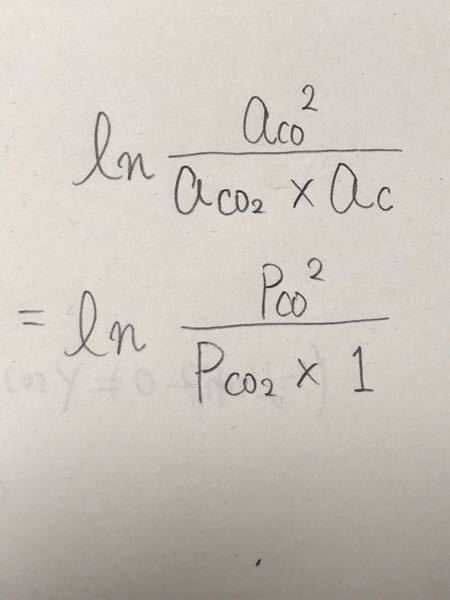 ln a_{CO}^2 / (a_{CO_2} × a_C)
= ln P_{CO}^2 / (P_{CO_2} × 1)